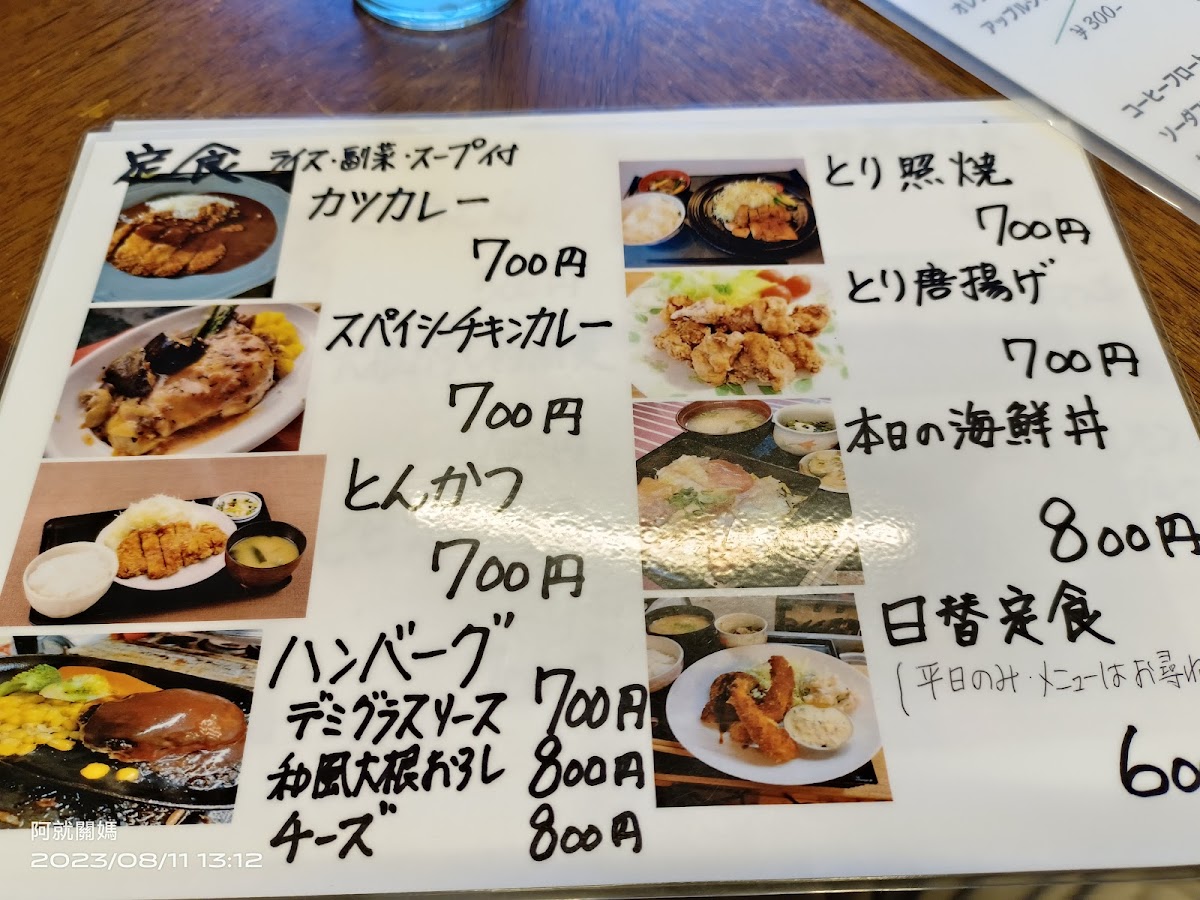 定食 ライス・副菜・スープ付
カツカレー
700円
スパイシーチキンカレー
700円
とんかつ
700円
ハンバーグ
デミグラスソース 700円
和風大根おろし 800円
チーズ 800円
とり照焼
700円
とり唐揚げ
700円
本日の海鮮丼
800円
日替定食
(平日のみ・メニューはお尋ね
60
アップル
¥300-
コーヒーフロート
ソーダフ
阿就關媽
2023/08/11 13:12